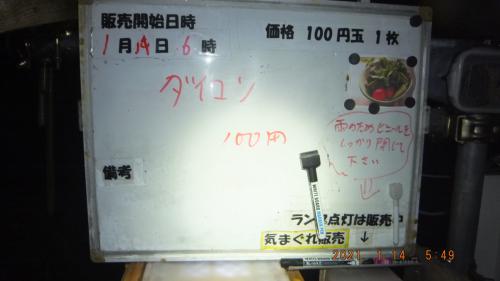 販売開始日時
1月14日 6時
価格 100円玉 1枚
ダイコン
100円
雨のためビニールを
しっかり閉じて
下さい
備考
ランプ点灯は販売中
気まぐれ販売 ↓
2021 1.14 5:49